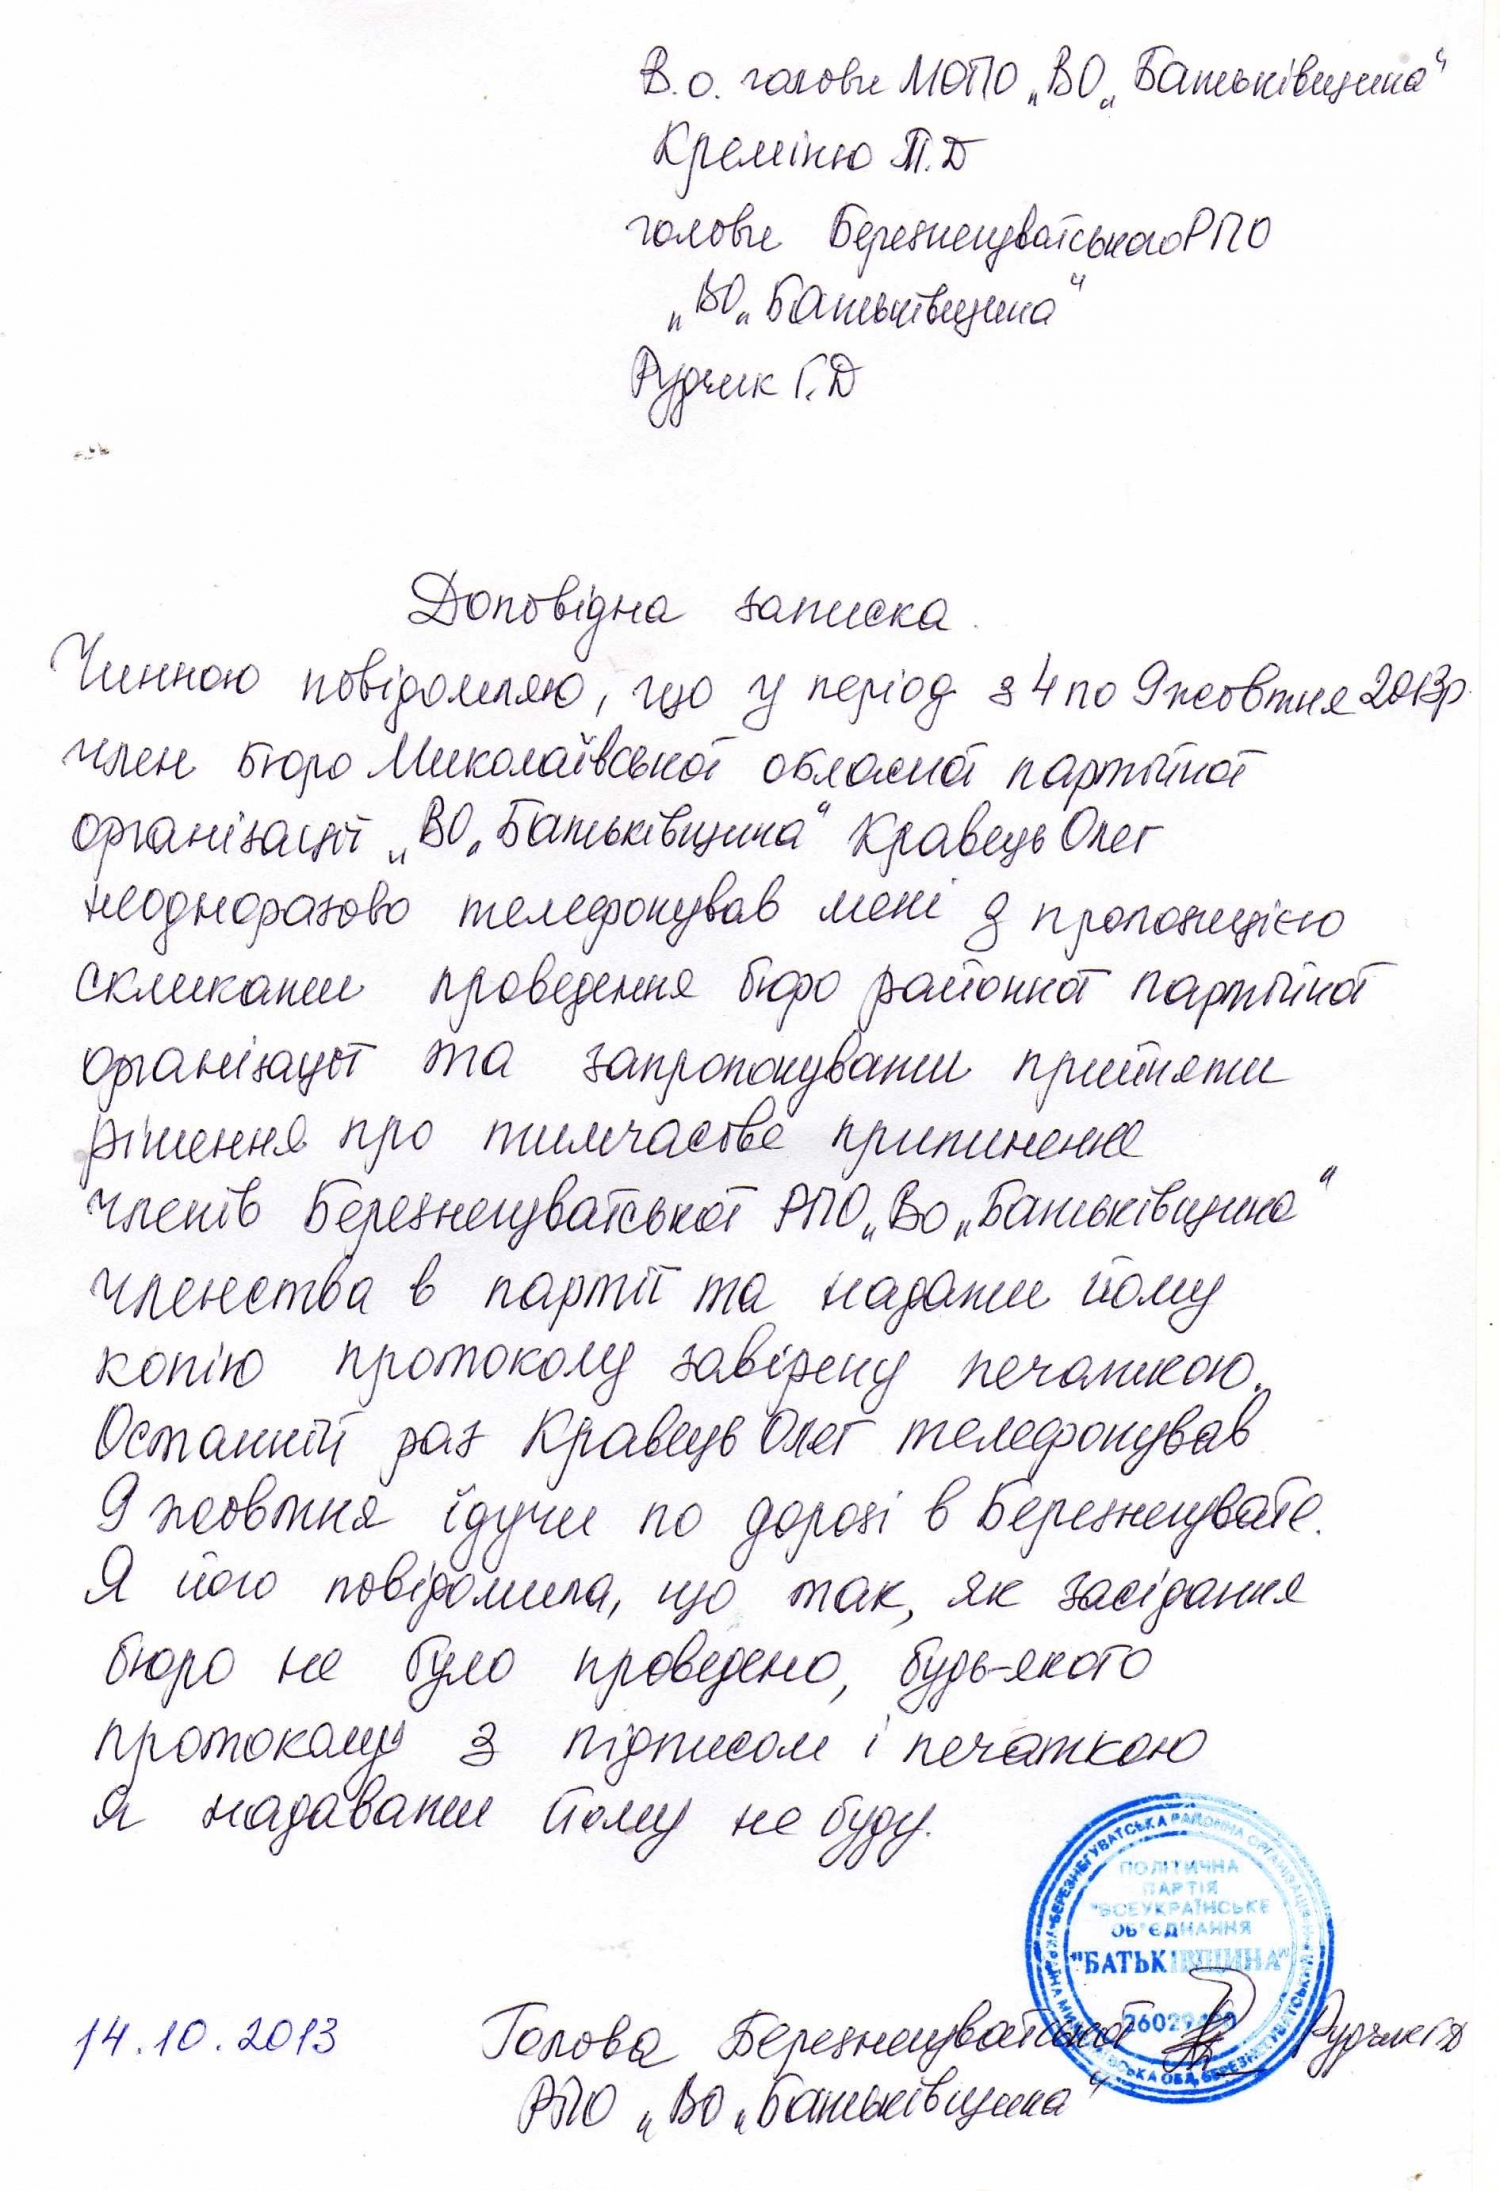 В.о. голови МОПО „ВО „Батьківщина“
Креміню Т.Д
голови Березнегуватського РПО
„ВО „Батьківщина“
Рудчик Г.Д
Доповідна записка.
Чинною повідомляю, що у період з 4 по 9 жовтня 2013р.
член бюро Миколаївської обласної партійної
організації „ВО „Батьківщина“ Кравець Олег
неодноразово телефонував мені з пропозицією
скликати проведення бюро районної партійної
організації та запропонувати прийняти
рішення про тимчасове припинення
членів Березнегуватської РПО „Во „Батьківщина“
членства в партії та надати йому
копію протоколу завірену печаткою.
Останній раз Кравець Олег телефонував
9 жовтня їдучи по дорозі в Березнегувате.
Я його повідомила, що так, як засідання
бюро не було проведено, будь-якого
протоколу з підписом і печаткою
я надавати йому не буду.
БЕРЕЗНЕГУВАТСЬКА РАЙОННА ОРГАНІЗАЦІЯ
ПОЛІТИЧНА
ПАРТІЯ
"ВСЕУКРАЇНСЬКЕ
ОБ'ЄДНАННЯ
"БАТЬКІВЩИНА"
14.10.2013 Голова Березнегуватської Рудчик Г.Д
РПО „ВО „Батьківщина“